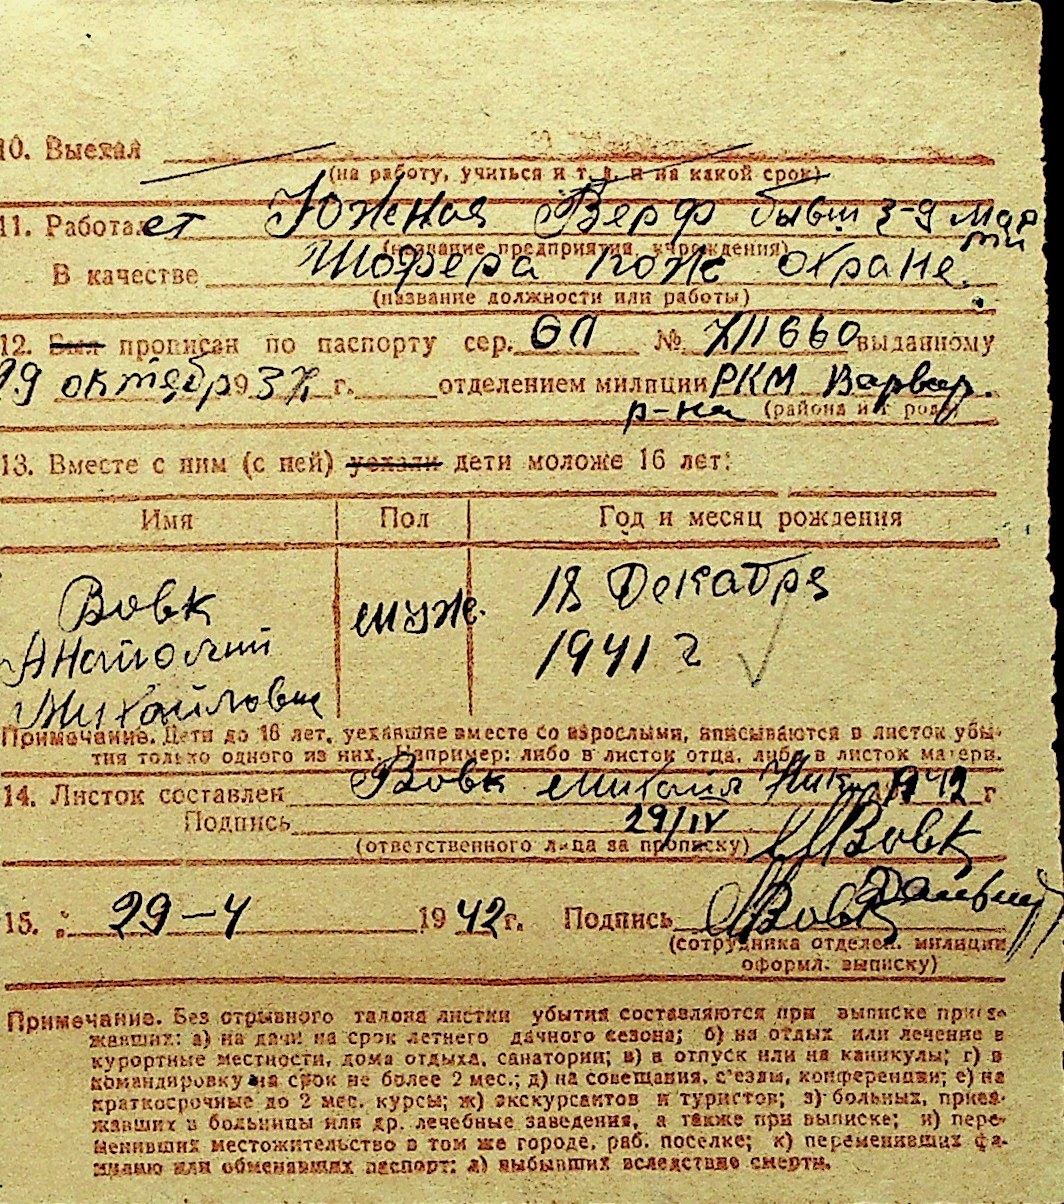 10. Выехал
(на работу, учиться и т. д. и на какой срок)
11. Работает Южная Верф бывш 3-9 Мар
ти
(название предприятия, учреждения)
В качестве Шофера пож охране.
(название должности или работы)
12. Был прописан по паспорту сер. ОП № 711660 выданному
19 октябр 1937 г. отделением милиции РКМ Варвар.
р-на (района и г рода)
13. Вместе с ним (с ней) уехали дети моложе 16 лет:
Имя Пол Год и месяц рождения
Вовк муж. 18 Декабря
Анатолий 1941 г
Михайлович
Примечание. Дети до 16 лет, уехавшие вместе со взрослыми, вписываются в листок убы-
тия только одного из них. Например: либо в листок отца, либо в листок матери.
14. Листок составлен Вовк Михаил Ник 1942 г
Подпись 29/IV Вовк
(ответственного лица за прописку)
15. " 29-4 1942 г. Подпись Вовк
(сотрудника отделен. милиции
оформл. выписку)
Примечание. Без отрывного талона листки убытия составляются при выписке приез-
жавших: а) на дачи на срок летнего дачного сезона; б) на отдых или лечение в
курортные местности, дома отдыха, санатории; в) в отпуск или на каникулы; г) в
командировку на срок не более 2 мес.; д) на совещания, с'езды, конференции; е) на
краткосрочные до 2 мес. курсы; ж) экскурсантов и туристов; з) больных, приез-
жавших в больницы или др. лечебные заведения, а также при выписке; и) пере-
менивших местожительство в том же городе, раб. поселке; к) переменивших фа-
милию или обменявших паспорт; л) выбывших вследствие смерти.